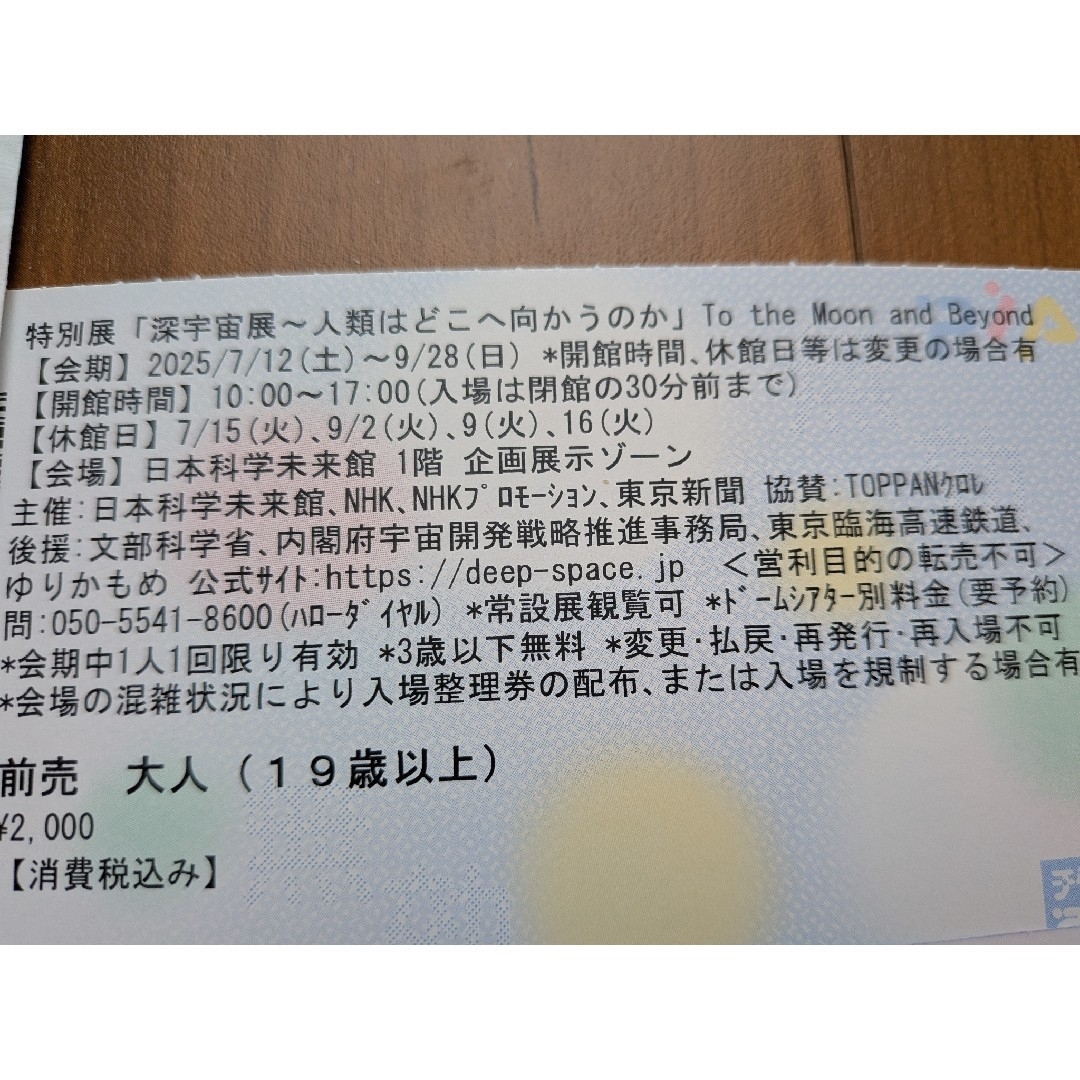 特別展「深宇宙展～人類はどこへ向かうのか」To the Moon and Beyond
【会期】2025/7/12(土)～9/28(日) *開館時間、休館日等は変更の場合有
【開館時間】10:00～17:00(入場は閉館の30分前まで)
【休館日】7/15(火)、9/2(火)、9(火)、16(火)
【会場】日本科学未来館 1階 企画展示ゾーン
主催:日本科学未来館、NHK、NHKﾌﾟﾛﾓｰｼｮﾝ、東京新聞 協賛:TOPPANｸﾛﾚ
後援:文部科学省、内閣府宇宙開発戦略推進事務局、東京臨海高速鉄道、
ゆりかもめ 公式ｻｲﾄ:https://deep-space.jp ＜営利目的の転売不可＞
問:050-5541-8600(ﾊﾛｰﾀﾞｲﾔﾙ) *常設展観覧可 *ﾄﾞｰﾑｼｱﾀｰ別料金(要予約)
*会期中1人1回限り有効 *3歳以下無料 *変更･払戻･再発行･再入場不可
*会場の混雑状況により入場整理券の配布、または入場を規制する場合有
前売 大人（１９歳以上）
¥2,000
【消費税込み】